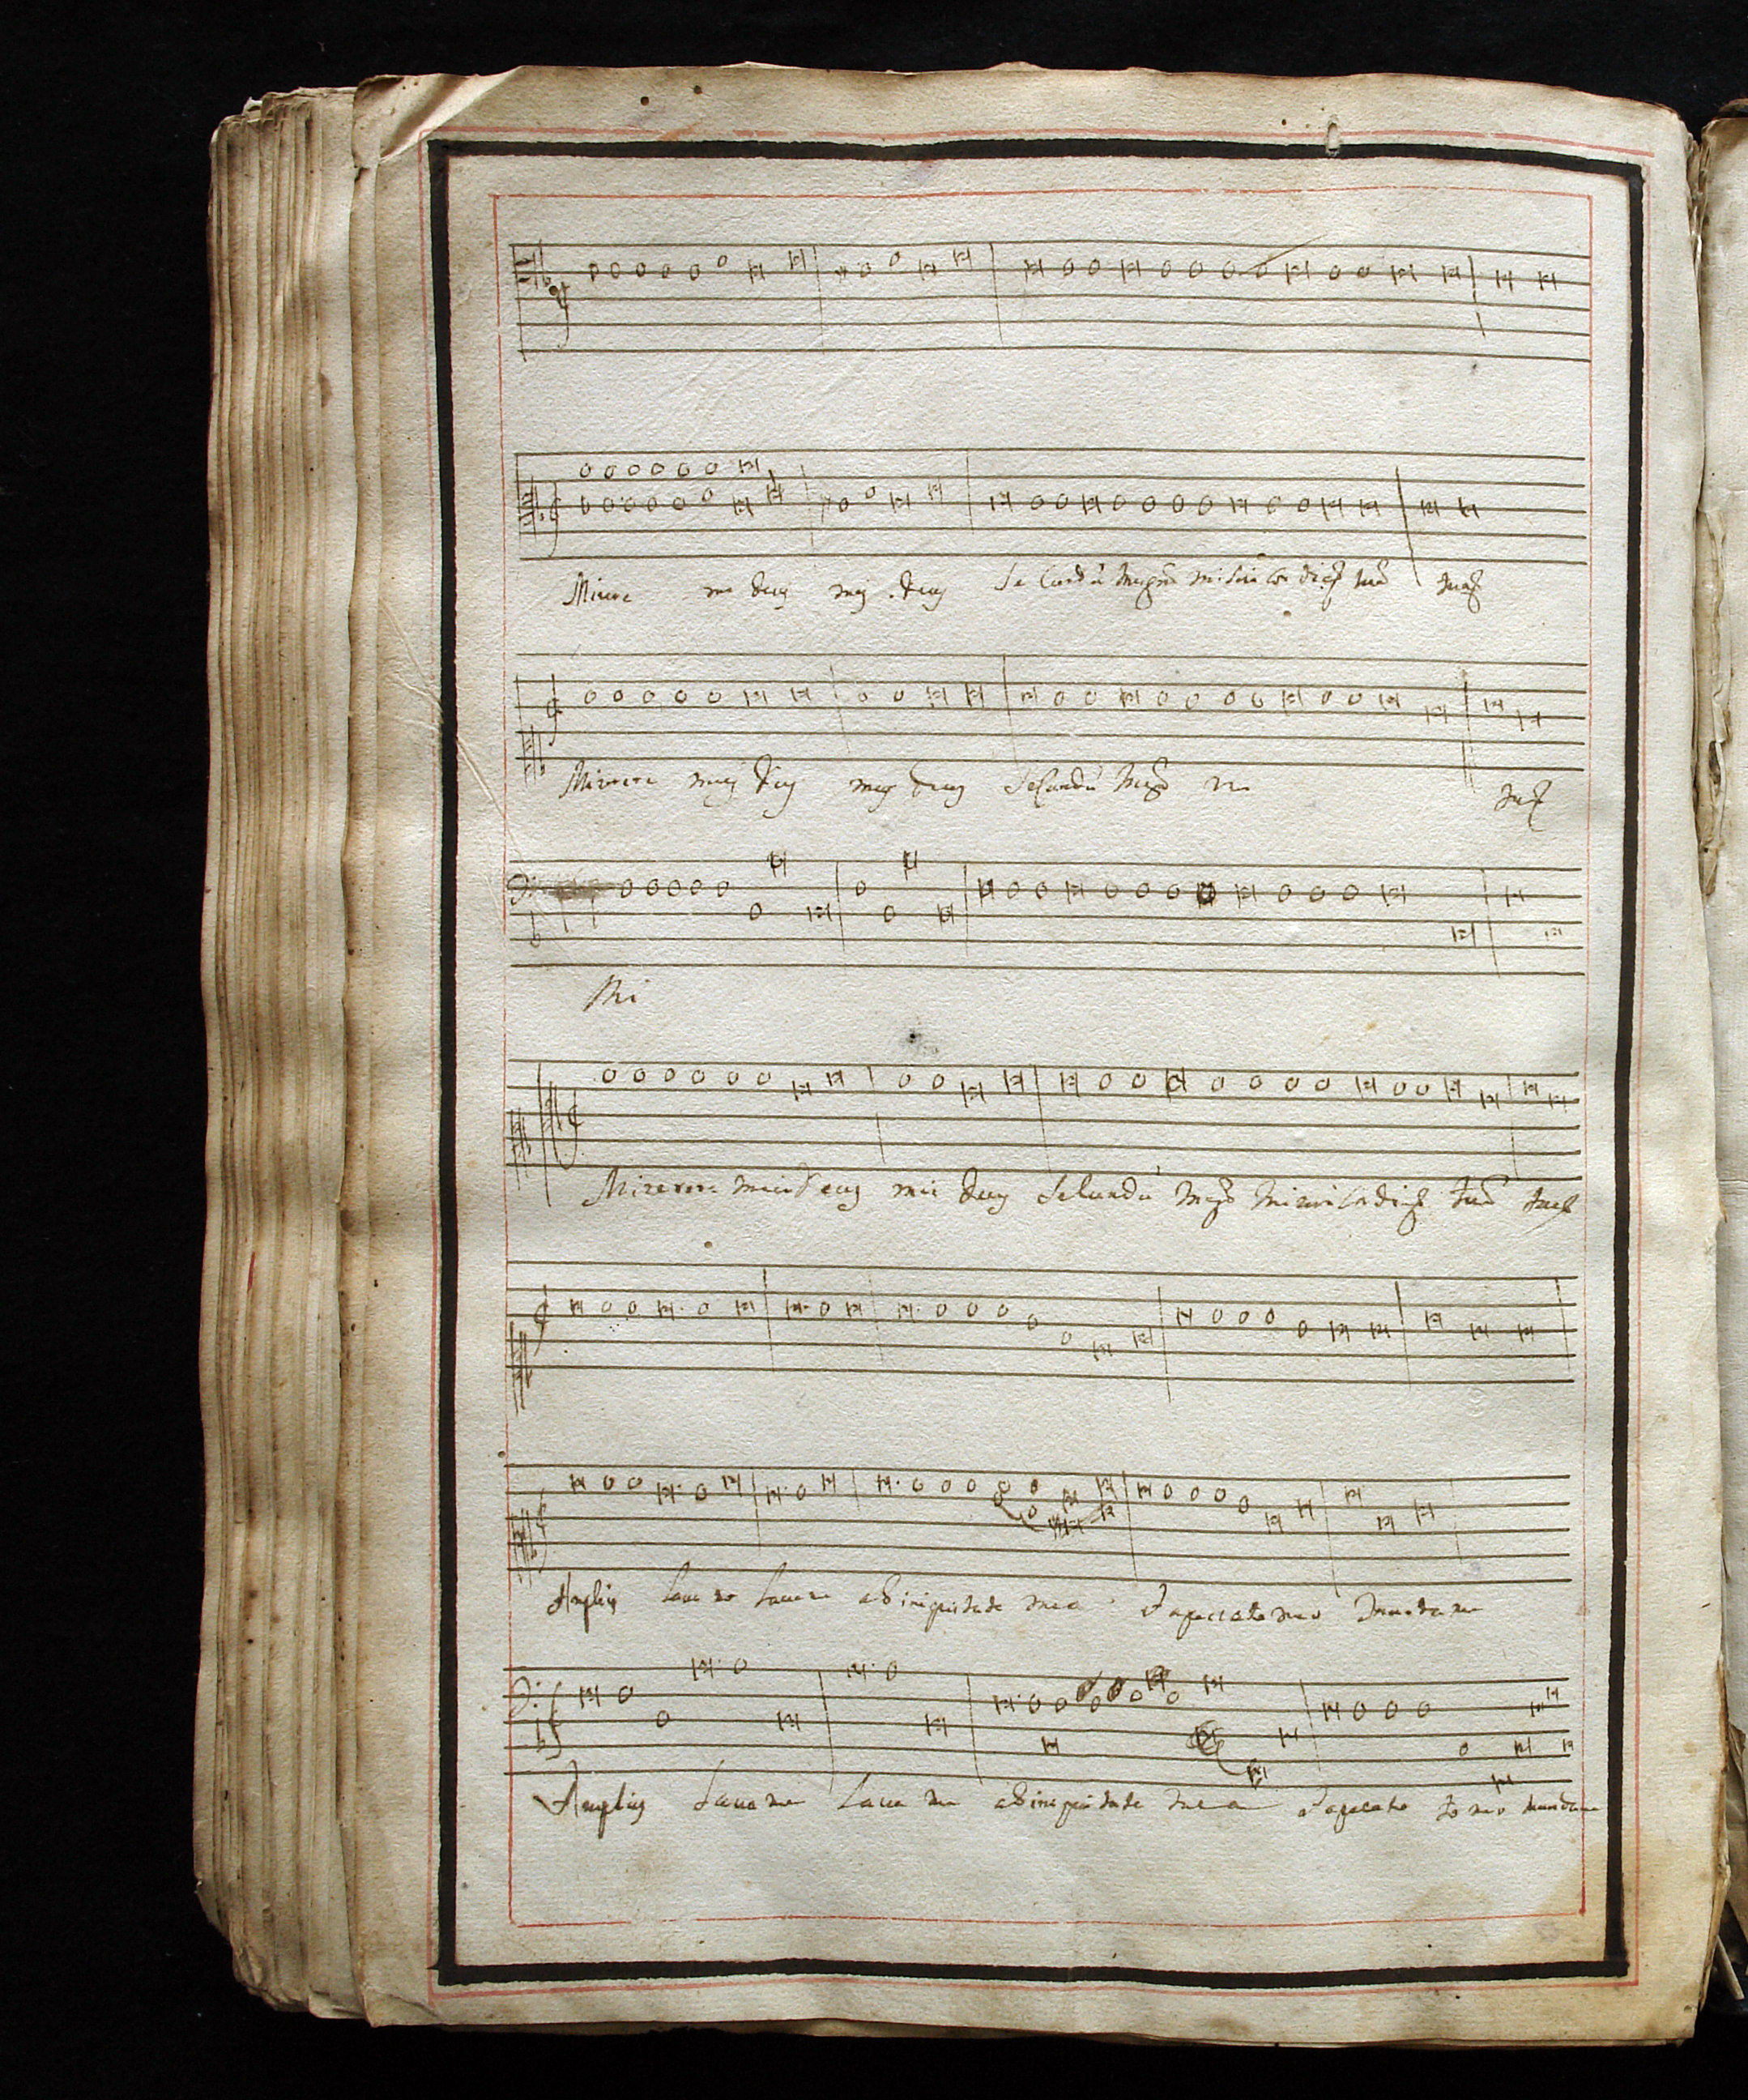 Misere me deus meus deus Secundũ magnã misericordiaʒ tuã tuaʒ
Miserere meus deus meus deus Secundũ magã m tuaʒ
Mi
Miserere mei deus mei deus Secundũ magã misericordiaʒ tuã tuaʒ
Amplius laua me laua me ab iniquitate mea & a peccato meo munda me
Amplius laua me laua me ab iniquitate mea & a pecato to meo munda me